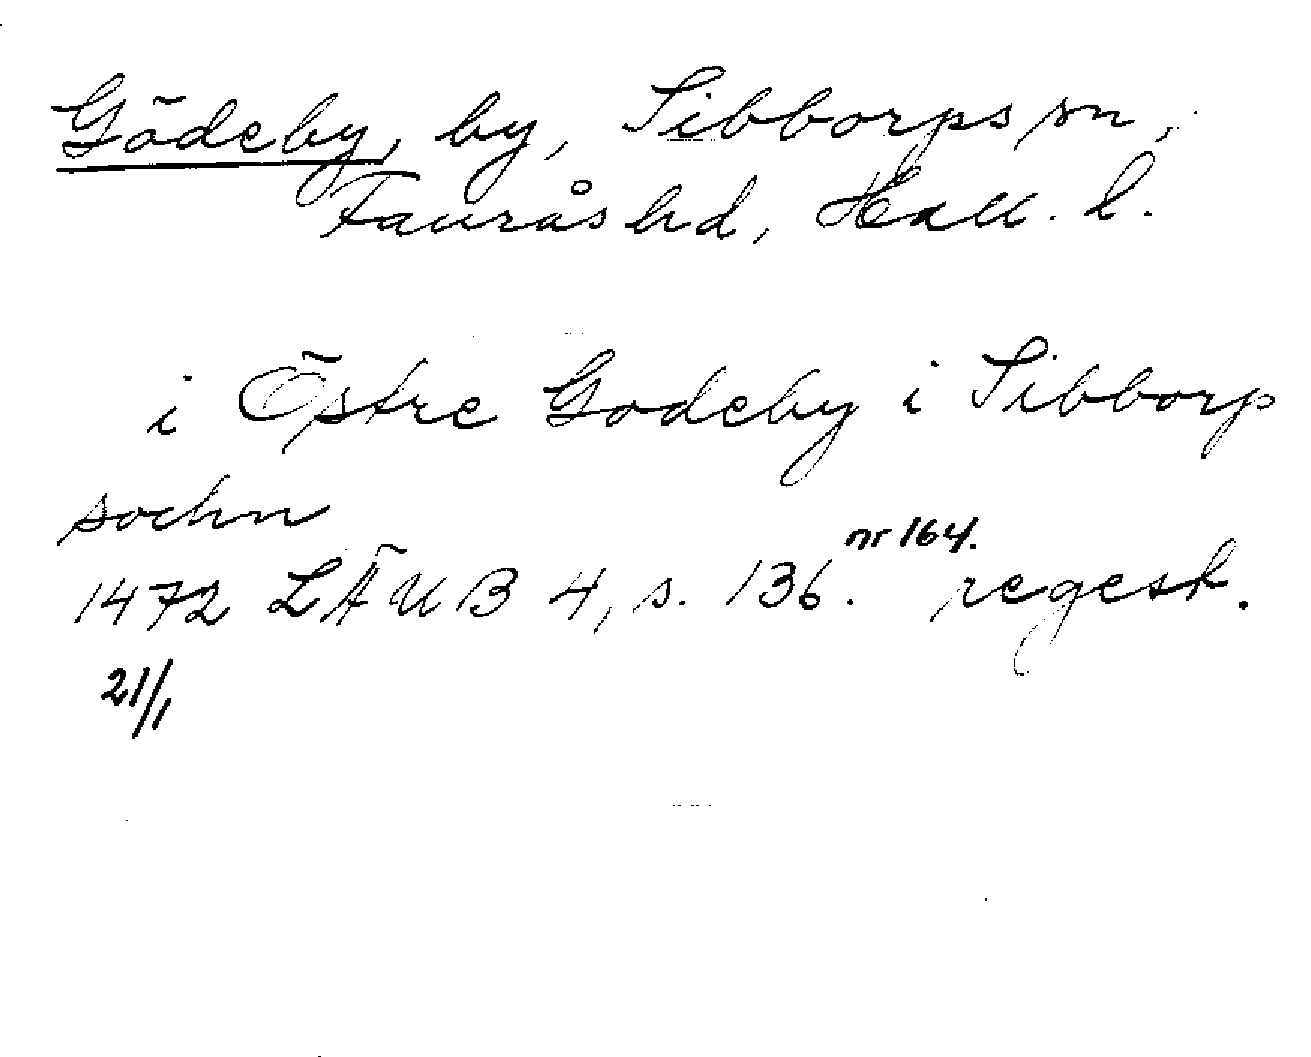 Gödeby, by, Sibborps sn,
Faurås hd, Hall. l.
i Östre Godeby i Sibborp
sochn
1472 LÄUB 4, s. 136. nr 164. regest.
21/1